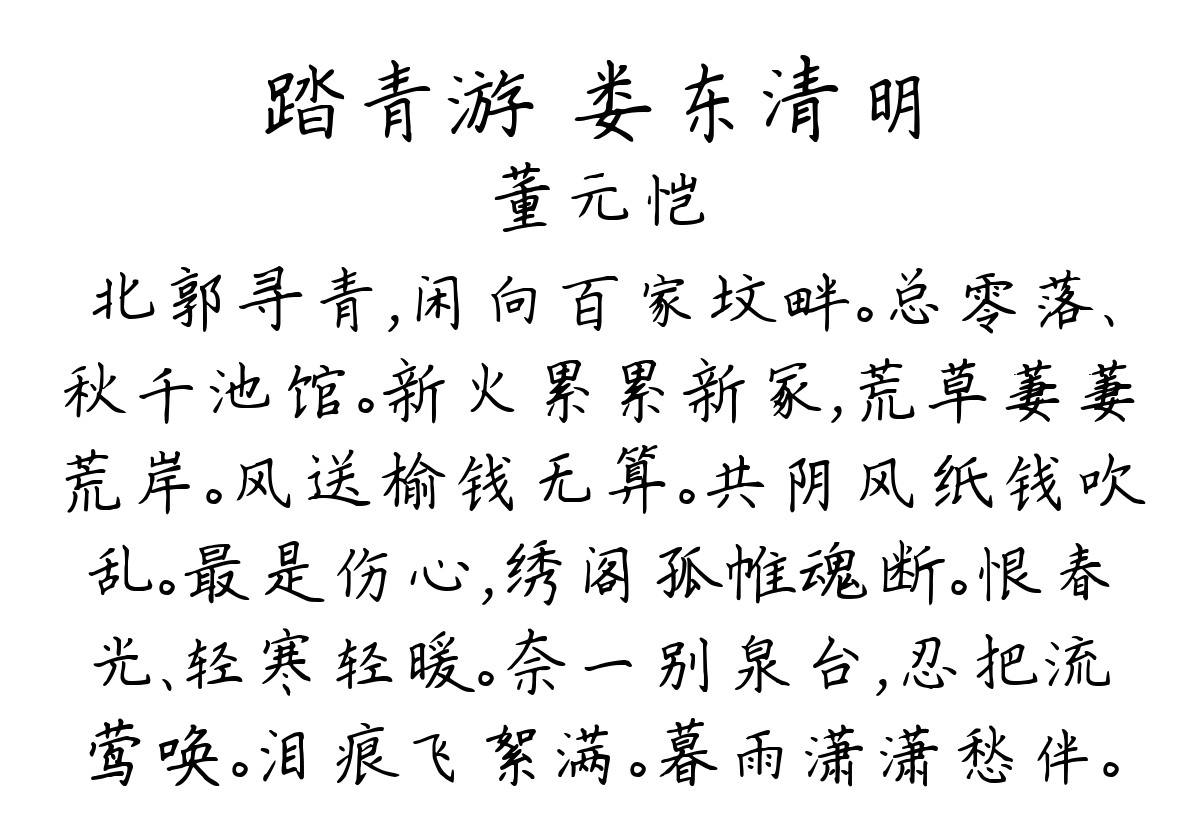 踏青游 娄东清明
董元恺
北郭寻青,闲向百家坟畔。总零落、
秋千池馆。新火累累新冢,荒草萋萋
荒岸。风送榆钱无算。共阴风纸钱吹
乱。最是伤心,绣阁孤帷魂断。恨春
光、轻寒轻暖。奈一别泉台,忍把流
莺唤。泪痕飞絮满。暮雨潇潇愁伴。